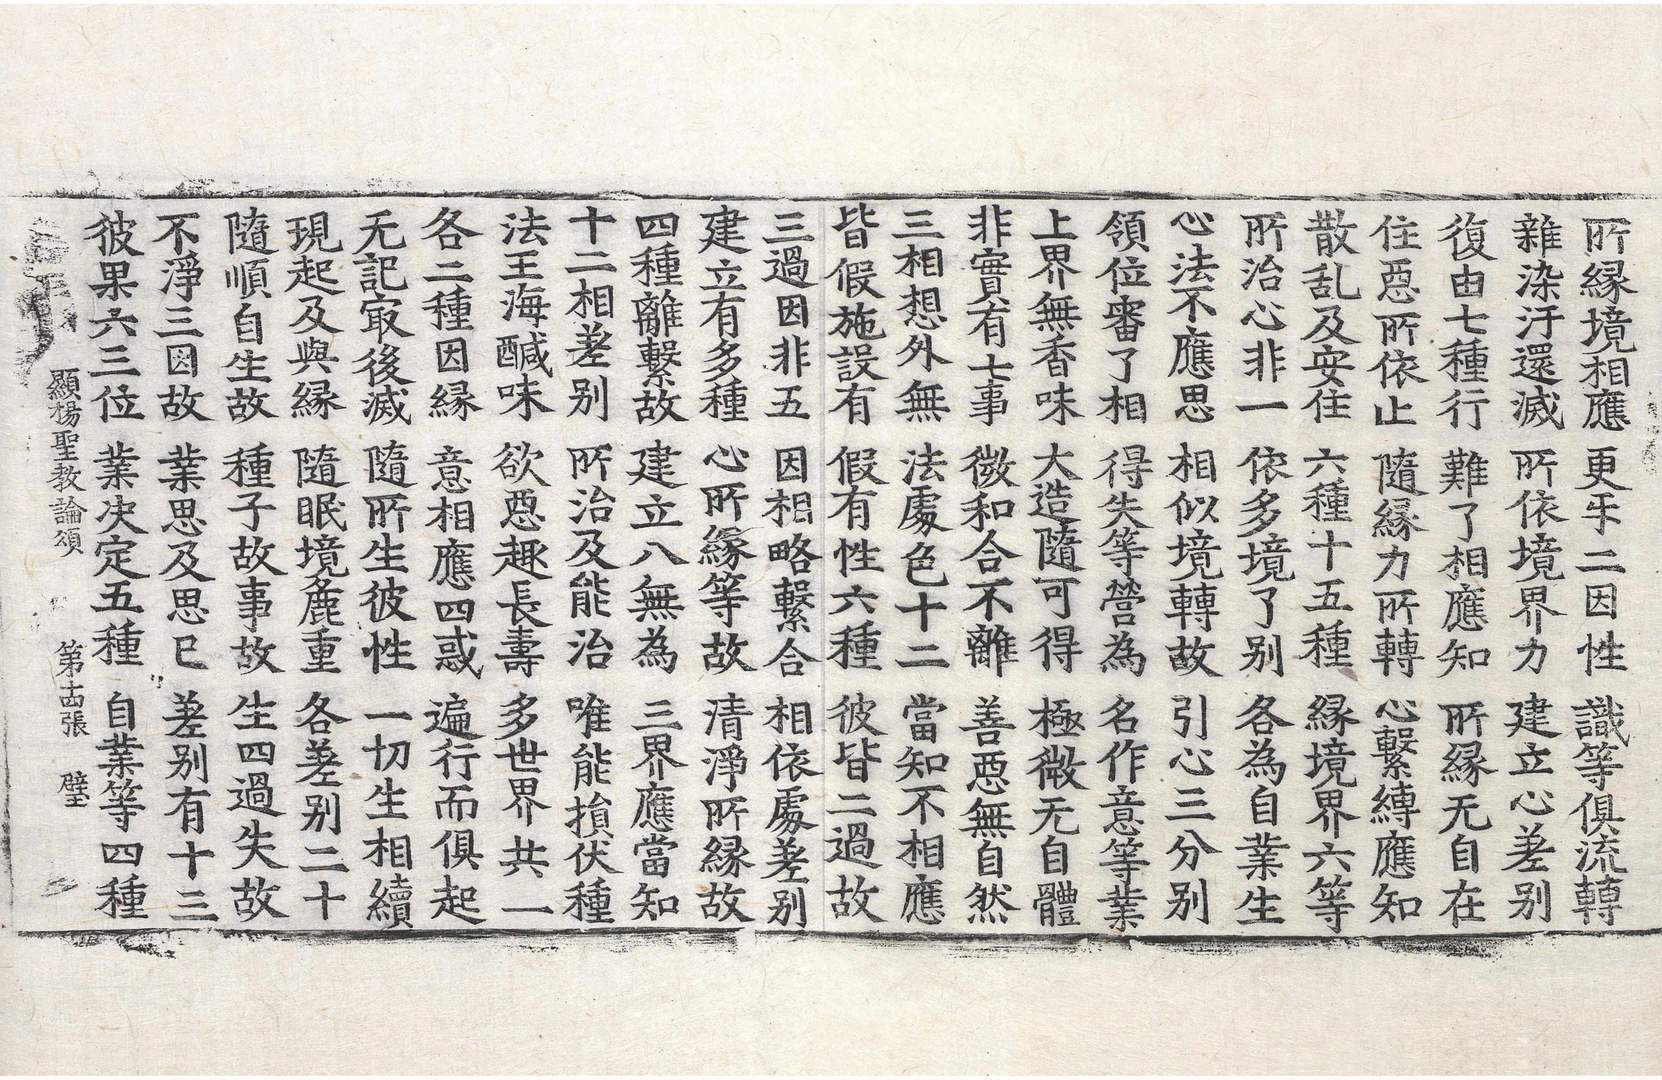 所縁境相應 更乐二因性 識等俱流轉
雜染汙還滅 所依境界力 建立心差別
復由七種行 難了相應知 所縁无自在
住惡所依止 隨縁力所轉 心繫縛應知
散乱及安住 六種十五種 縁境界六等
所治心非一 依多境了別 各為自業生
心法不應思 相似境轉故 引心三分別
領位審了相 得失等營為 名作意等業
上界無香味 大造隨可得 極微无自體
非實有七事 微和合不離 善惡無自然
三相想外無 法處色十二 當知不相應
皆假施設有 假有性六種 彼皆二過故
三過因非五 因相略繫合 相依處差別
建立有多種 心所縁等故 清淨所縁故
四種離繫故 建立八無為 三界應當知
十二相差別 所治及能治 唯能損伏種
法王海醎味 欲惡趣長壽 多世界共一
各二種因縁 意相應四惑 遍行而俱起
无記㝡後滅 隨所生彼性 一切生相續
現起及與縁 隨眠境麁重 各差別二十
隨順自生故 種子故事故 生四過失故
不淨三因故 業思及思已 差別有十三
彼果六三位 業决定五種 自業等四種
顯揚聖教論頌 第十四張 璧